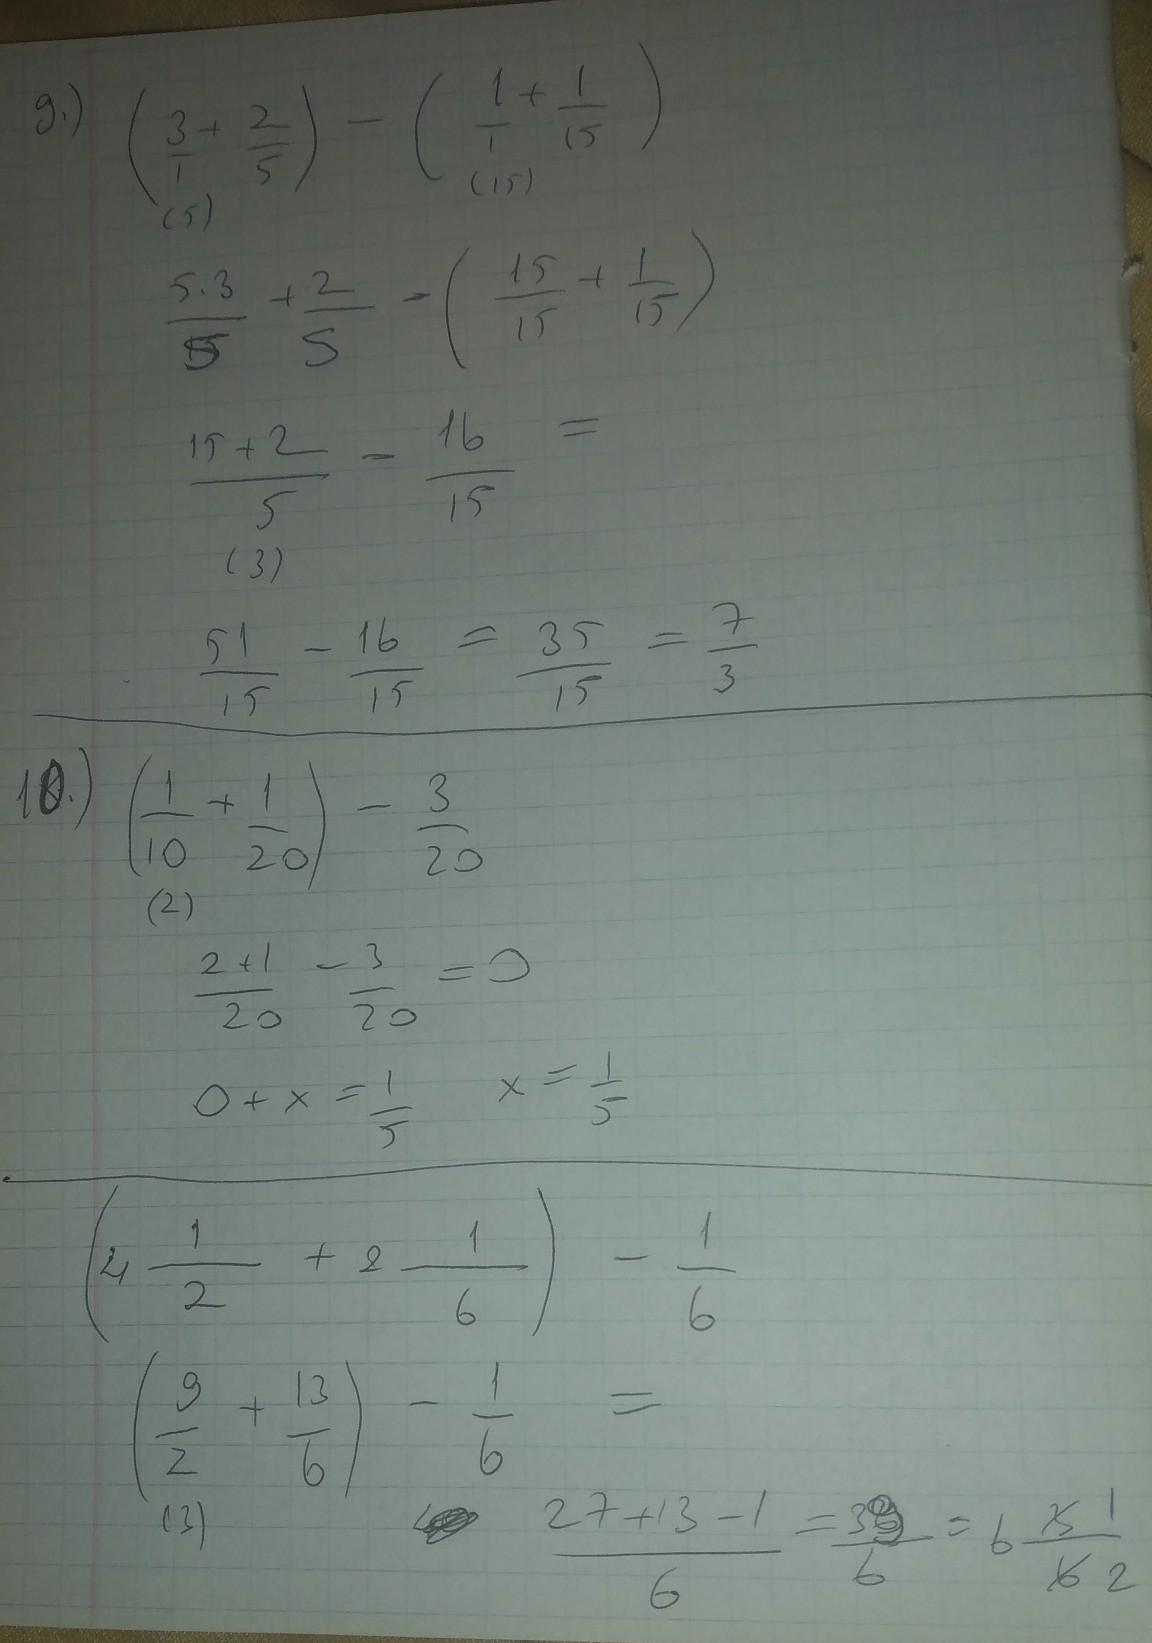 9.) (3/1 + 2/5) - (1/1 + 1/15)
(5) (15)
5.3/5 + 2/5 - (15/15 + 1/15)
15+2/5 - 16/15 =
(3)
51/15 - 16/15 = 35/15 = 7/3
10.) (1/10 + 1/20) - 3/20
(2)
2+1/20 - 3/20 = 0
0 + x = 1/5 x = 1/5
(4 1/2 + 2 1/6) - 1/6
(9/2 + 13/6) - 1/6 =
(3)
27+13-1/6 = 39/6 = 6 3/6 1/2